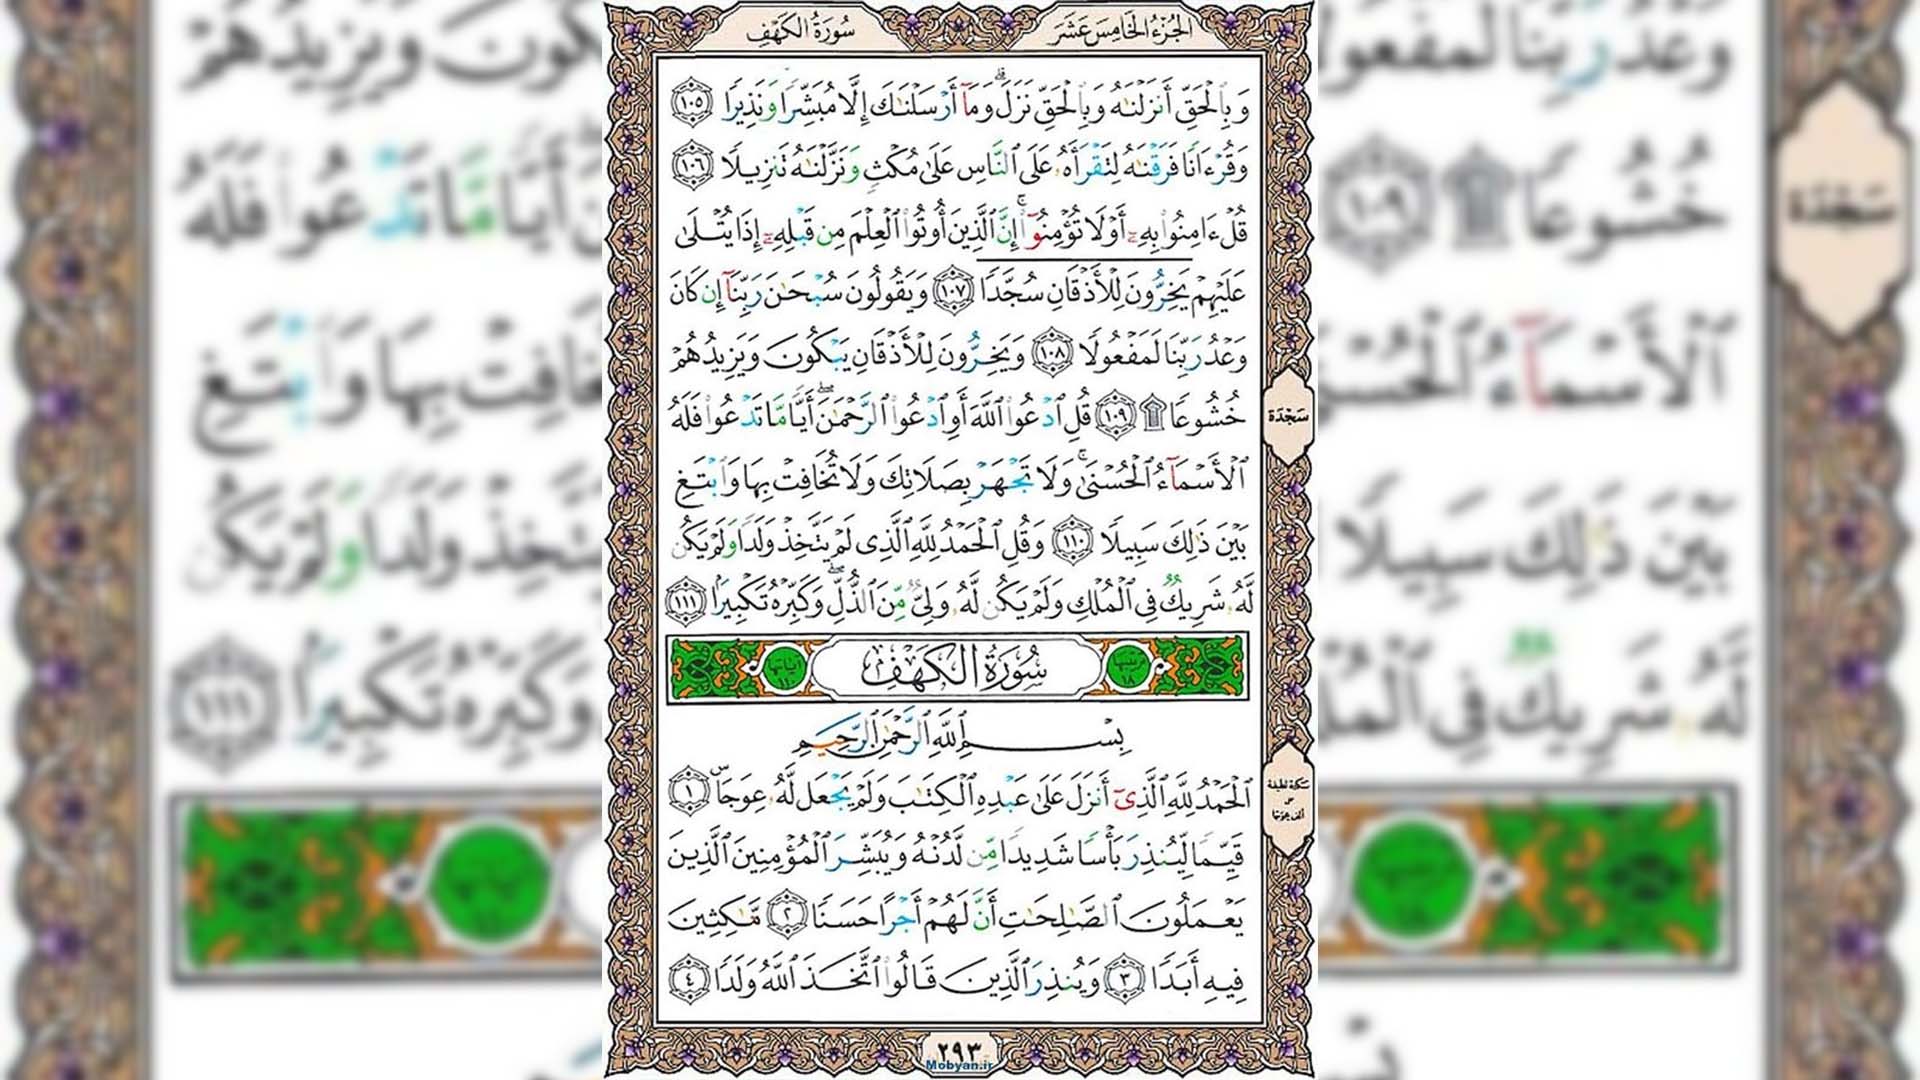 سُورَةُ الكَهْفِ
الجُزْءُ الخَامِسَ عَشَرَ
وَبِٱلْحَقِّ أَنزَلْنَٰهُ وَبِٱلْحَقِّ نَزَلَ ۗ وَمَآ أَرْسَلْنَٰكَ إِلَّا مُبَشِّرًا وَنَذِيرًا ١٠٥
وَقُرْءَانًا فَرَقْنَٰهُ لِتَقْرَأَهُۥ عَلَى ٱلنَّاسِ عَلَىٰ مُكْثٍ وَنَزَّلْنَٰهُ تَنزِيلًا ١٠٦
قُلْ ءَامِنُوا۟ بِهِۦٓ أَوْ لَا تُؤْمِنُوٓا۟ ۚ إِنَّ ٱلَّذِينَ أُوتُوا۟ ٱلْعِلْمَ مِن قَبْلِهِۦٓ إِذَا يُتْلَىٰ
عَلَيْهِمْ يَخِرُّونَ لِلْأَذْقَانِ سُجَّدًا ١٠٧ وَيَقُولُونَ سُبْحَٰنَ رَبِّنَآ إِن كَانَ
وَعْدُ رَبِّنَا لَمَفْعُولًا ١٠٨ وَيَخِرُّونَ لِلْأَذْقَانِ يَبْكُونَ وَيَزِيدُهُمْ
خُشُوعًا ۩ ١٠٩ قُلِ ٱدْعُوا۟ ٱللَّهَ أَوِ ٱدْعُوا۟ ٱلرَّحْمَٰنَ ۖ أَيًّا مَّا تَدْعُوا۟ فَلَهُ
سَجْدَة
ٱلْأَسْمَآءُ ٱلْحُسْنَىٰ ۚ وَلَا تَجْهَرْ بِصَلَاتِكَ وَلَا تُخَافِتْ بِهَا وَٱبْتَغِ
بَيْنَ ذَٰلِكَ سَبِيلًا ١١٠ وَقُلِ ٱلْحَمْدُ لِلَّهِ ٱلَّذِى لَمْ يَتَّخِذْ وَلَدًا وَلَمْ يَكُن
لَّهُۥ شَرِيكٌ فِى ٱلْمُلْكِ وَلَمْ يَكُن لَّهُۥ وَلِىٌّ مِّنَ ٱلذُّلِّ ۖ وَكَبِّرْهُ تَكْبِيرًا ١١١
سُورَةُ الكَهْفِ
بِسْمِ ٱللَّهِ ٱلرَّحْمَٰنِ ٱلرَّحِيمِ
ٱلْحَمْدُ لِلَّهِ ٱلَّذِىٓ أَنزَلَ عَلَىٰ عَبْدِهِ ٱلْكِتَٰبَ وَلَمْ يَجْعَل لَّهُۥ عِوَجَا ۜ ١
قَيِّمًا لِّيُنذِرَ بَأْسًا شَدِيدًا مِّن لَّدُنْهُ وَيُبَشِّرَ ٱلْمُؤْمِنِينَ ٱلَّذِينَ
يَعْمَلُونَ ٱلصَّٰلِحَٰتِ أَنَّ لَهُمْ أَجْرًا حَسَنًا ٢ مَّٰكِثِينَ
فِيهِ أَبَدًا ٣ وَيُنذِرَ ٱلَّذِينَ قَالُوا۟ ٱتَّخَذَ ٱللَّهُ وَلَدًا ٤
٢٩٣
Mobyan.ir